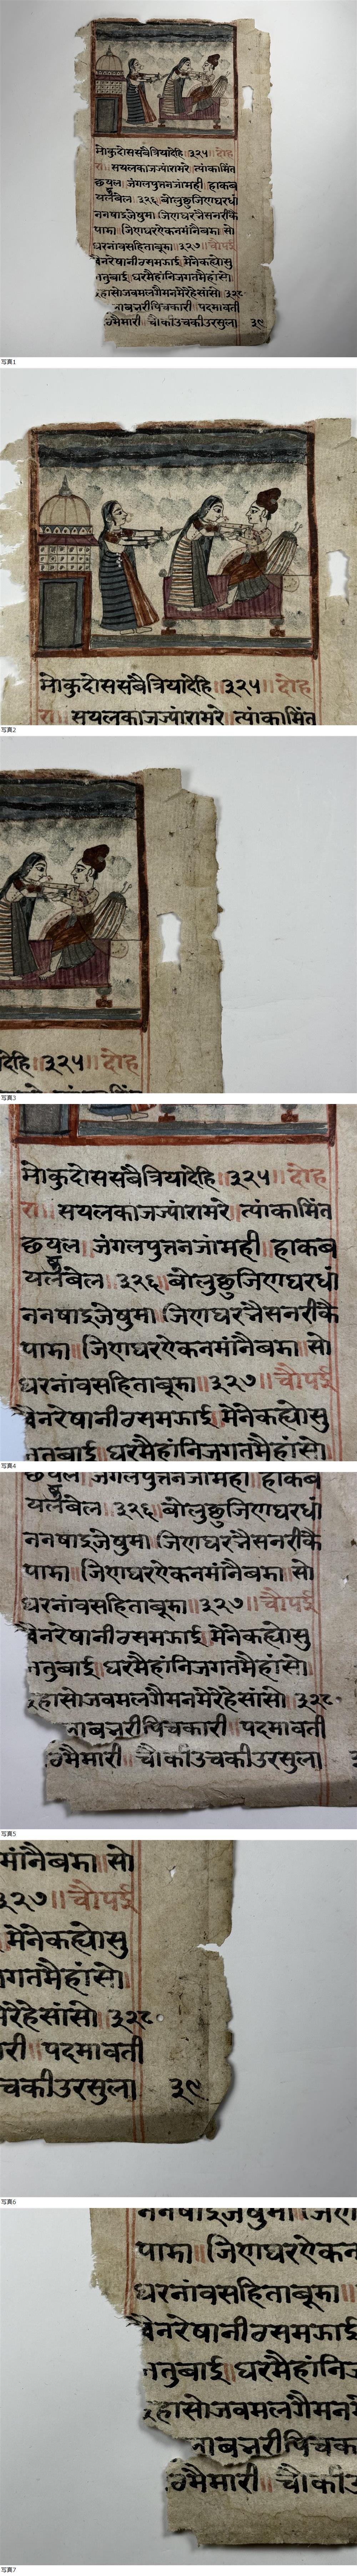 मोकुदोससंबैत्रियादेहि ॥ ३२५ ॥ दोह
रा ॥ सयलकाजज्यांरामरे ॥ त्यांकामिंत
छयल ॥ जंगलपुत्तनजांमही ॥ हाकब
यलंबेल ॥ ३२६ ॥ बोलुछुजिणघरधां
ननषाइजेषुमा ॥ जिणघरनैसनरीकै
पामा ॥ जिणघरऐकनमांनैबमा ॥ सो
घरनांवसहिताबूमा ॥ ३२७ ॥ चौपई
मेनेकह्योसु
नतुबाई ॥ घरमैहांनिजगतमैहांसो
हासोजवमलगैमनमेरेहेसांसो ॥ ३२८
नाबनरीपिचकारी ॥ पदमावती
मैमारी ॥ चौकीउचकीउरसुला ॥ ३९
写真1
मोकुदोससंबैत्रियादेहि ॥ ३२५ ॥ दोह
सयलकाजज्यांरामरे ॥ त्यांकामिंत
写真2
देहि ॥ ३२५ ॥ दोह
写真3
मोकुदोससंबैत्रियादेहि ॥ ३२५ ॥ दोह
रा ॥ सयलकाजज्यांरामरे ॥ त्यांकामिंत
छयल ॥ जंगलपुत्तनजांमही ॥ हाकब
यलंबेल ॥ ३२६ ॥ बोलुछुजिणघरधां
ननषाइजेषुमा ॥ जिणघरनैसनरीकै
पामा ॥ जिणघरऐकनमांनैबमा ॥ सो
घरनांवसहिताबूमा ॥ ३२७ ॥ चौपई
मेनेकह्योसु
नतुबाई ॥ घरमैहांनिजगतमैहांसो
写真4
यलंबेल ॥ ३२६ ॥ बोलुछुजिणघरधां
ननषाइजेषुमा ॥ जिणघरनैसनरीकै
पामा ॥ जिणघरऐकनमांनैबमा ॥ सो
घरनांवसहिताबूमा ॥ ३२७ ॥ चौपई
मेनेकह्योसु
नतुबाई ॥ घरमैहांनिजगतमैहांसो
हासोजवमलगैमनमेरेहेसांसो ॥ ३२८
नाबनरीपिचकारी ॥ पदमावती
मैमारी ॥ चौकीउचकीउरसुला
写真5
मांनैबमा ॥ सो
३२७ ॥ चौपई
मेनेकह्योसु
गतमैहांसो
मेरेहेसांसो ॥ ३२८
री ॥ पदमावती
चकीउरसुला ३९
写真6
पामा ॥ जिणघरऐकन
घरनांवसहिताबूमा ॥
नतुबाई ॥ घरमैहांनिज
हासोजवमलगैमन
नाबनरीपिचक
मैमारी ॥ चौकीउ
写真7